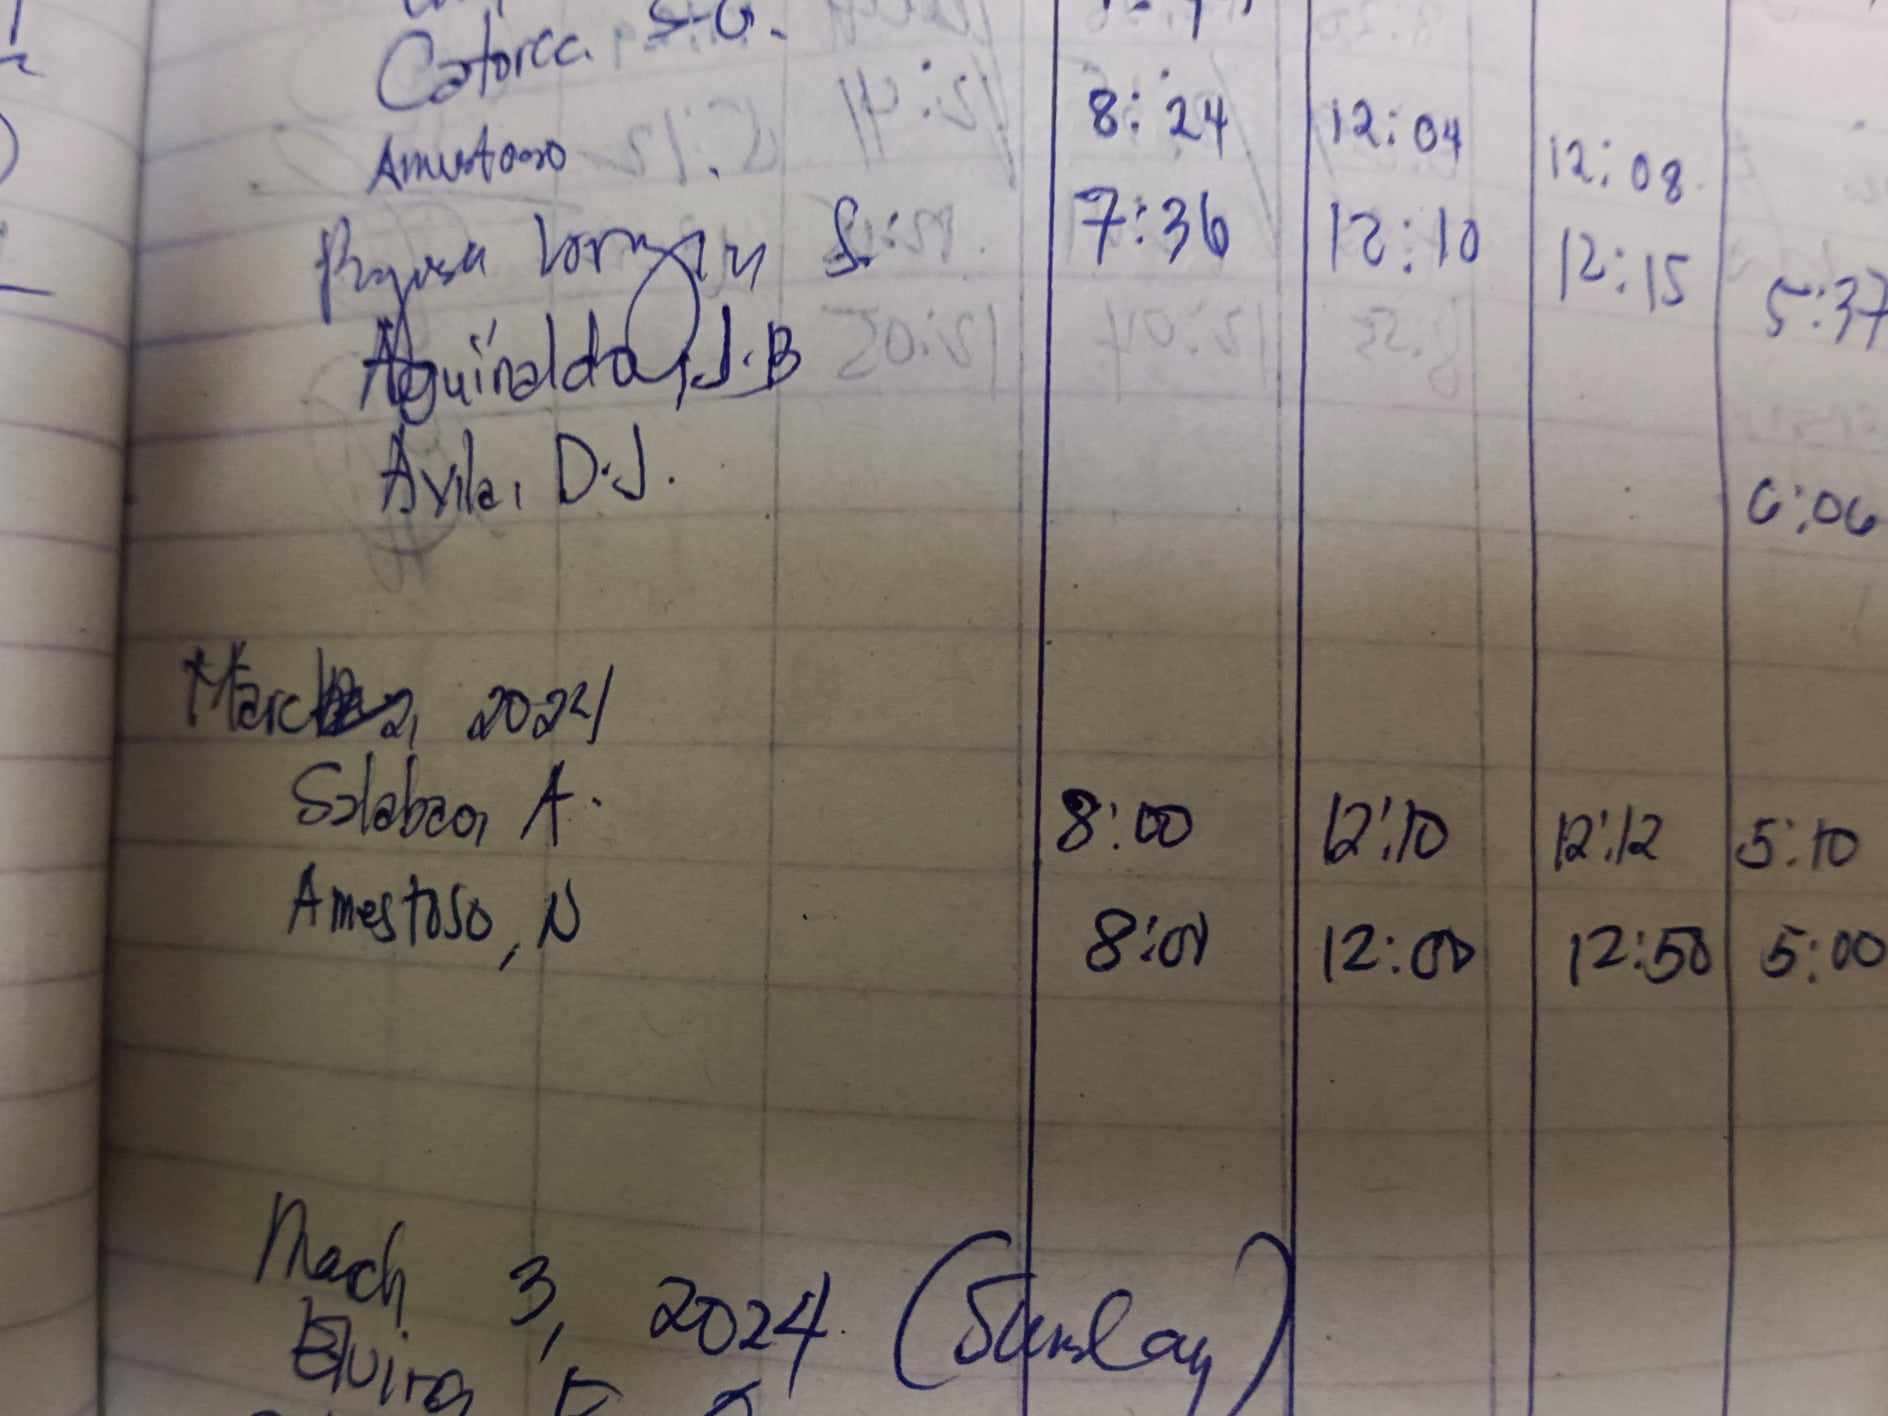 Catorce. S.G.
Amestoso 8:24 12:04 12:08
7:36 12:10 12:15 5:37
Aguinaldo, J.B
Avila, D.J. 6:06
March 2, 2024
Salabao, A. 8:00 12:10 12:12 5:10
Amestoso, N 8:01 12:00 12:50 5:00
Mach 3, 2024. (Sunday)
Elvira,